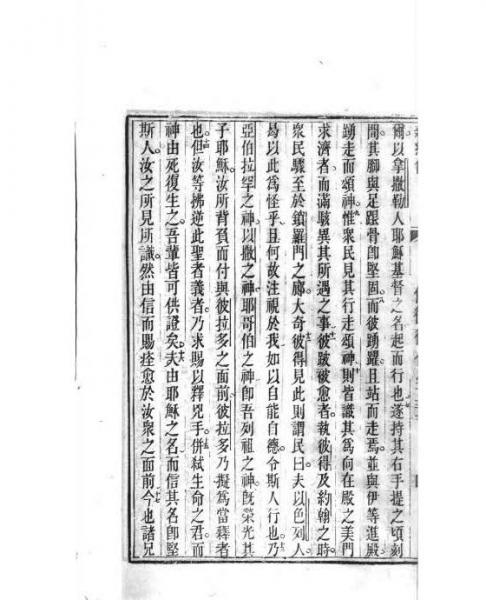 爾以拿撒勒人耶穌基督之名起而行也遂持其右手提之頃刻
間其腳與足跟骨卽堅固。而彼踴躍且站而走焉。並與伊等進殿
踴走而頌神。惟衆民見其行走頌神則皆識其爲向在殿之美門
求濟者。而滿駭異其所遇之事。彼跛被愈者執彼得及約翰之時。
衆民驟至於鎖羅門之廊大奇。彼得見此則謂民曰。夫以色列人
曷以此爲怪乎。且何故注視於我如以自能自德令斯人行也。乃
亞伯拉罕之神以撒之神耶哥伯之神卽吾列祖之神旣榮光其
子耶穌。汝所背負而付與彼拉多之面前。彼拉多乃擬爲當釋者
也。但汝等拂逆此聖者義者。乃求賜以釋兇手。併弒生命之君。而
神由死復生之。吾輩皆可供證矣。夫由耶穌之名而信其名卽堅
斯人汝之所見所識。然由信而賜痊愈於汝衆之面前。今也諸兄